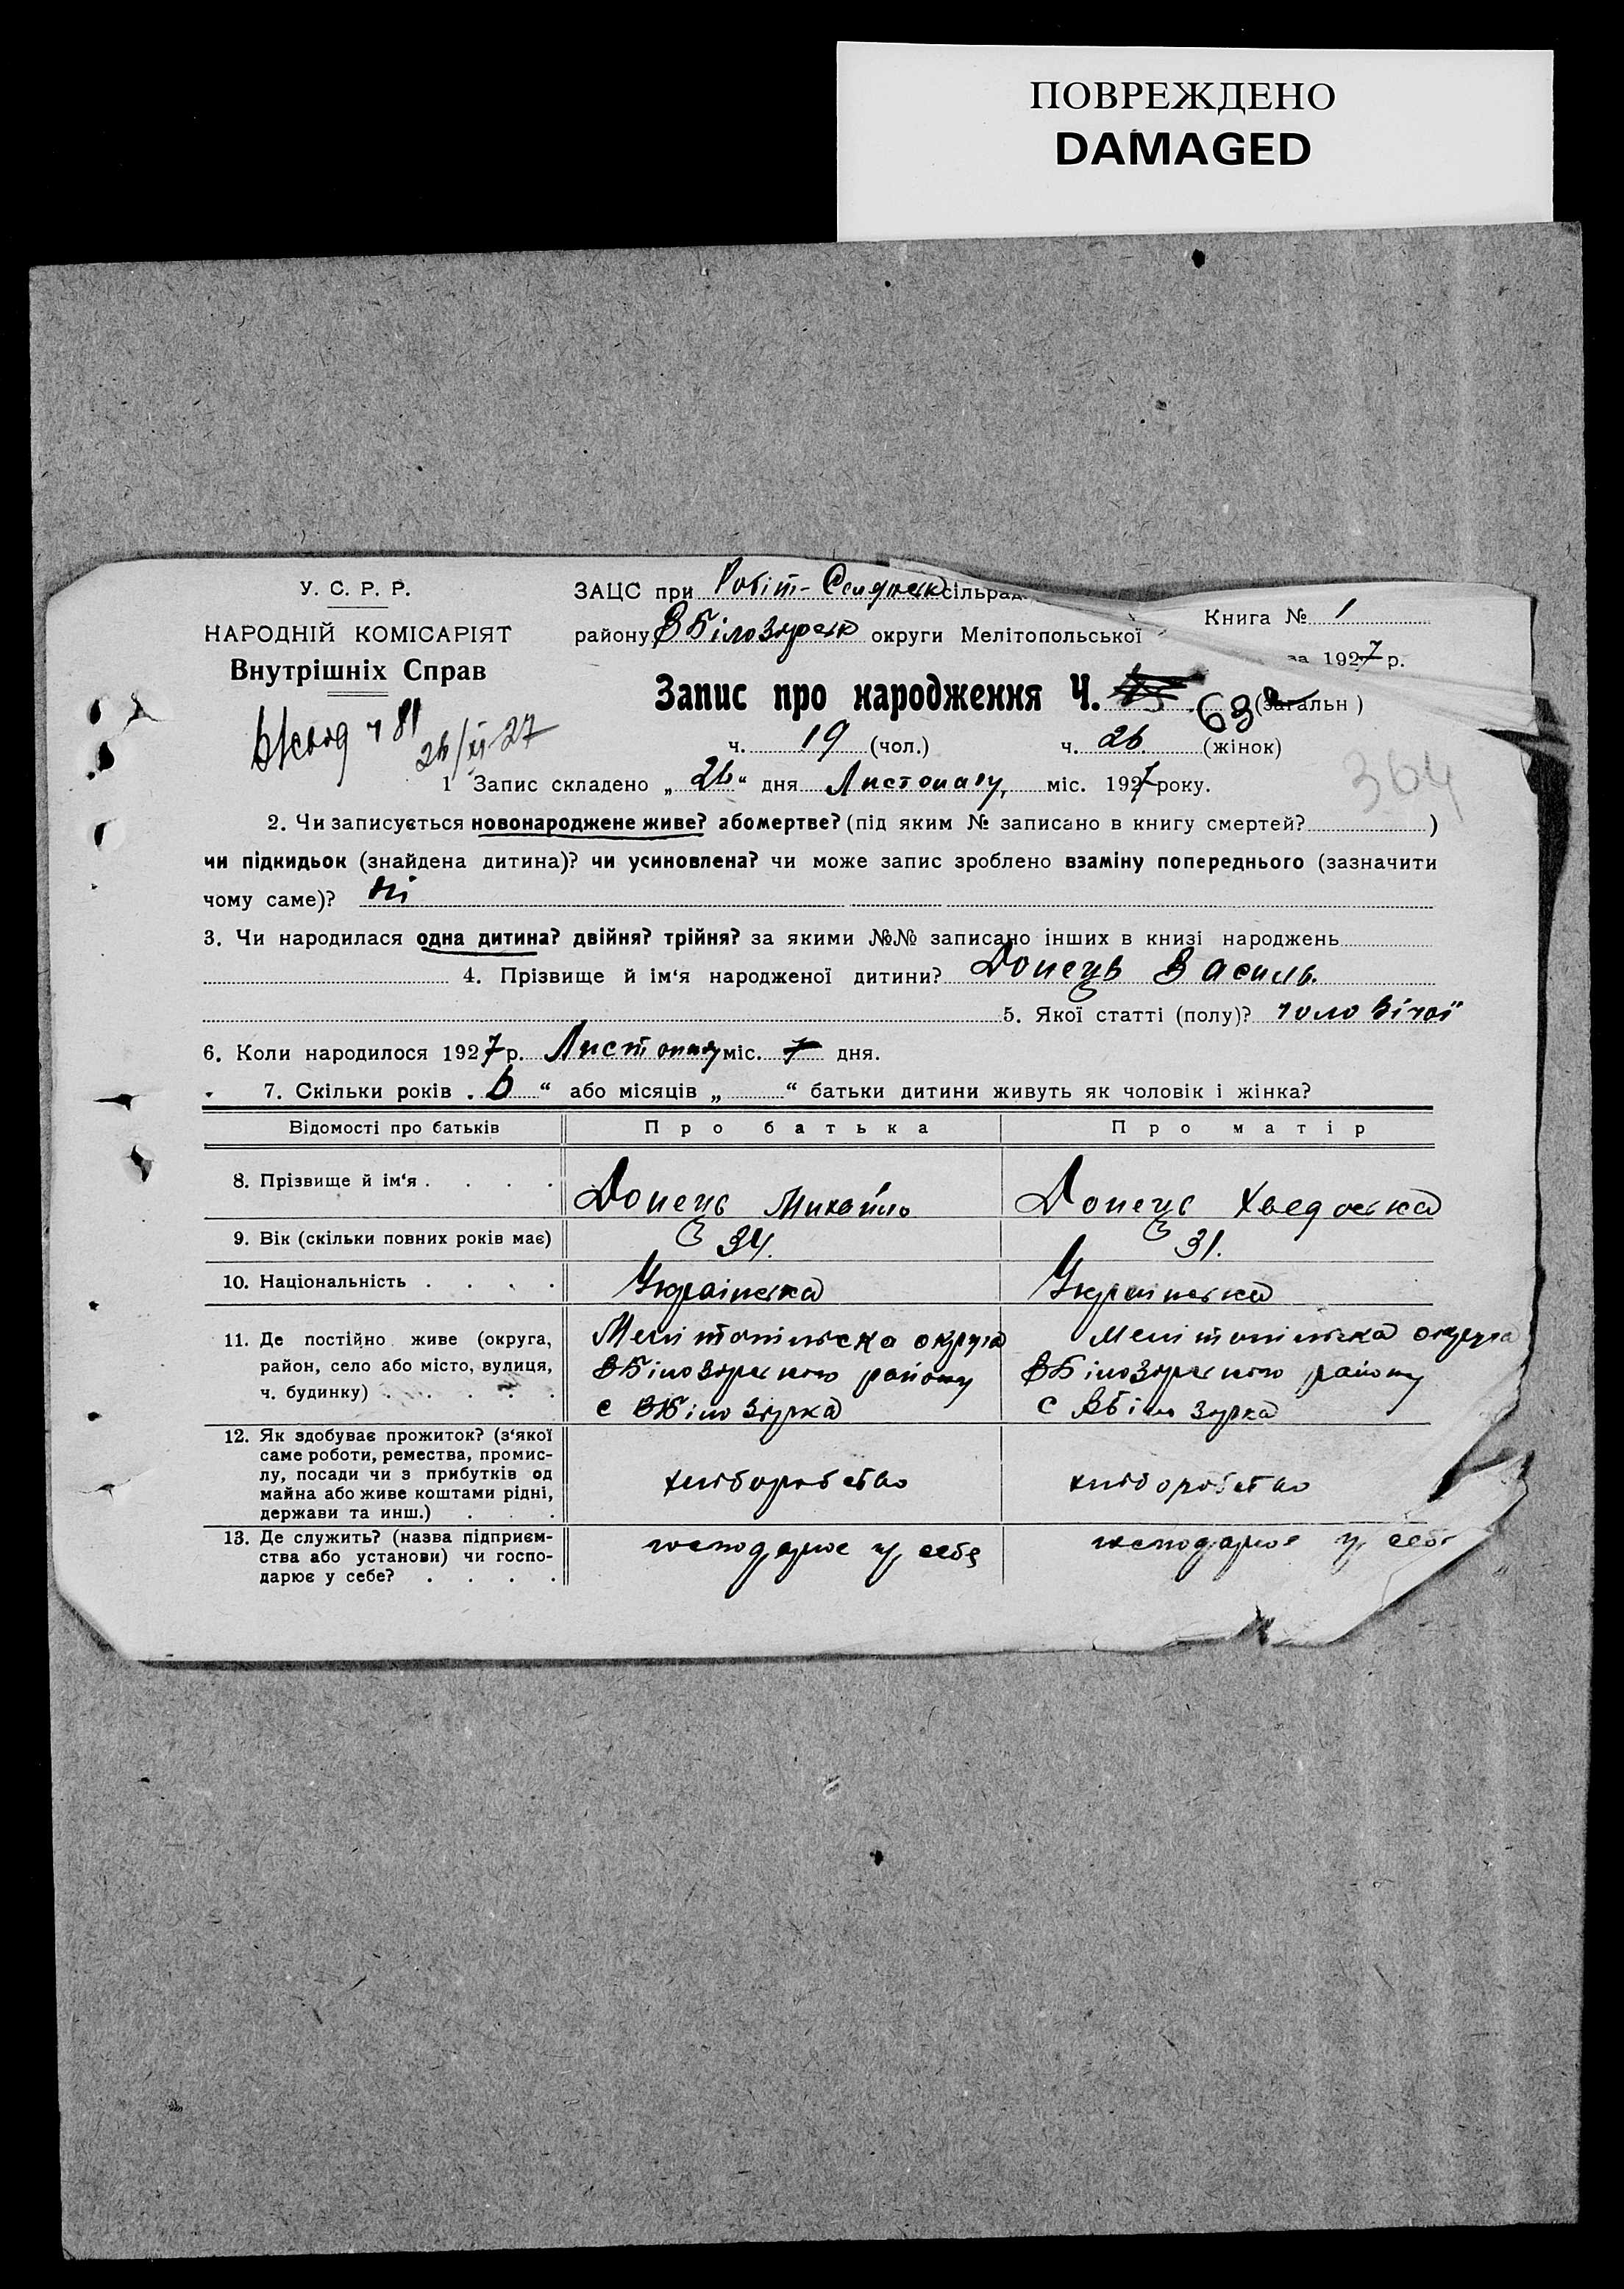 ПОВРЕЖДЕНО
DAMAGED
У. С. Р. Р.
НАРОДНІЙ КОМІСАРІЯТ
Внутрішніх Справ
ЗАЦС при Робіт- сільрад
району ВБілозірськ округи Мелітопольської
Книга № 1
за 1927 р.
Запис про народження Ч. 63 (загальн)
ч. 19 (чол.) ч. 26 (жінок)
ч 81
26/XI 27
364
1 Запис складено „26“ дня Листопаду, міс. 1927 року.
2. Чи записується новонароджене живе? або мертве? (під яким № записано в книгу смертей? )
чи підкидьок (знайдена дитина)? чи усиновлена? чи може запис зроблено взаміну попереднього (зазначити
чому саме)? ні
3. Чи народилася одна дитина? двійня? трійня? за якими №№ записано інших в книзі народжень
4. Прізвище й ім‘я народженої дитини? Донець Василь.
5. Якої статті (полу)? чоловічої
6. Коли народилося 1927 р. Листопаду міс. 7 дня.
7. Скільки років „6“ або місяців „ “ батьки дитини живуть як чоловік і жінка?
Відомості про батьків Про батька Про матір
8. Прізвище й ім‘я . . . . Донець Михайло Донець Хведоська
9. Вік (скільки повних років має) 34. 31.
10. Національність . . . . Українська Українська
11. Де постійно живе (округа, Мелітопільска округа Мелітопільска округа
район, село або місто, вулиця, ВБілозірского району ВБілозірского району
ч. будинку) . . . . . с ВБілозірка с ВБілозірка
12. Як здобуває прожиток? (з‘якої
саме роботи, ремества, промис-
лу, посади чи з прибутків од хліборобство хліборобство
майна або живе коштами рідні,
держави та инш.) . . .
13. Де служить? (назва підприєм- господарює у себе господарює у себе
ства або установи) чи госпо-
дарює у себе? . . . .